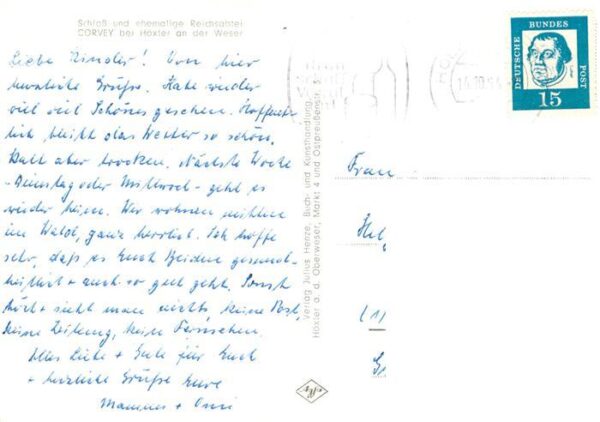 Schloß und ehemalige Reichsabtei
CORVEY bei Höxter an der Weser
Liebe Kinder! Von hier
herzliche Grüße. Habe wieder
viel viel Schönes gesehen. Hoffent-
lich bleibt das Wetter so schön,
kalt aber trocken. Nächste Woche
- Dienstag oder Mittwoch - geht es
wieder heim. Wir wohnen mitten
im Wald, ganz herrlich. Ich hoffe
sehr, daß es Euch Beiden gesund-
heitlich + auch so gut geht. Sonst
hört + sieht man nichts, keine Post,
keine Zeitung, kein Fernsehen.
Alles Liebe + Gute für Euch
+ herzliche Grüße Eure
+ Omi
Verlag Julius Henze, Buch- und Kunsthandlung,
Höxter a. d. Oberweser, Markt 4 und Ostpreußenstr.
DEUTSCHE BUNDESPOST
15
Frau